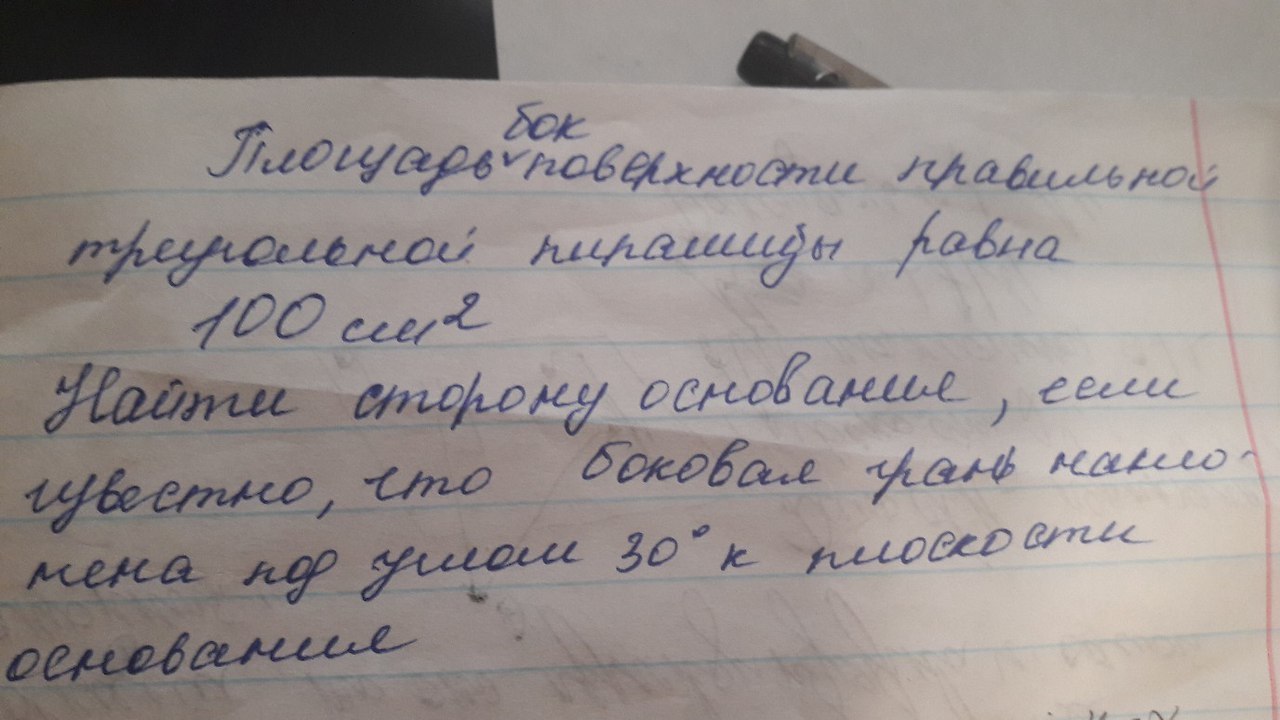 Площадь бок поверхности правильной
треугольной пирамиды равна
100 см²
Найти сторону основания, если
известно, что боковая грань накло-
нена под углом 30° к плоскости
основания